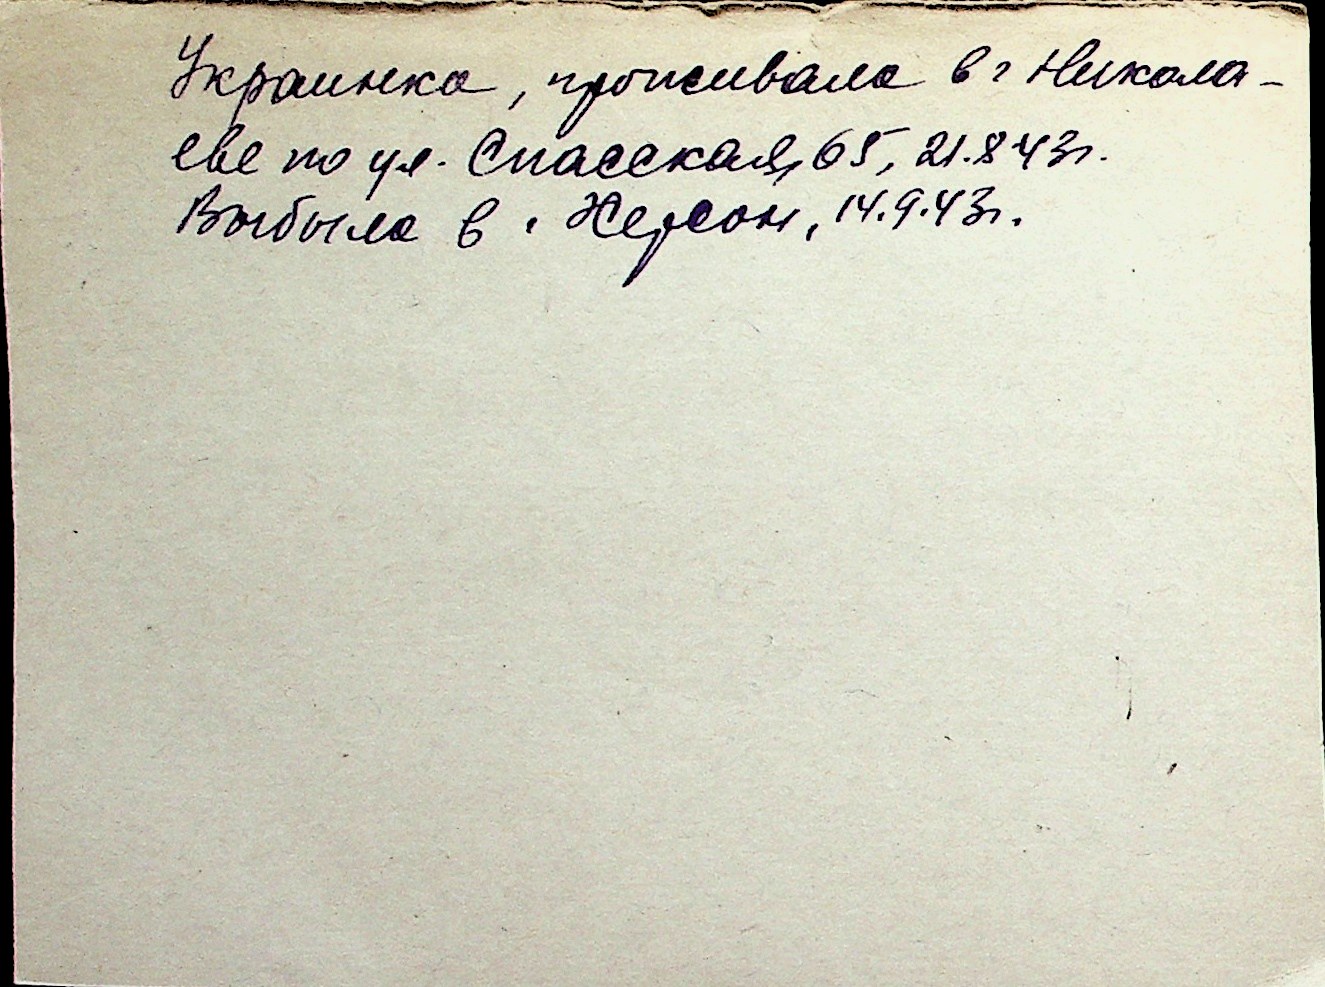 Украинка, проживала в г Никола-
еве по ул. Спасская, 65, 21.8.43г.
Выбыла в г. Херсон, 14.9.43г.